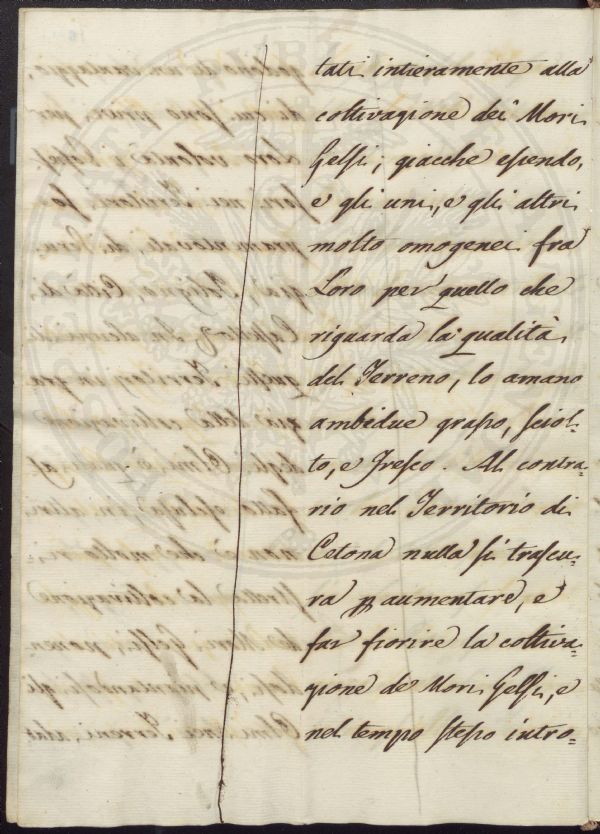 tati intieramente alla
coltivazione dei Mori
Gelsi; giacche essendo,
e gli uni, e gli altri
molto omogenei fra
Loro per quello che
riguarda la qualità
del Terreno, lo amano
ambidue grasso, sciol-
to, e Fresco. Al contra-
rio nel Territorio di
Cetona nulla si trascu-
ra p aumentare, e
far fiorire la coltiva-
zione de Mori Gelsi, e
nel tempo stesso intro-